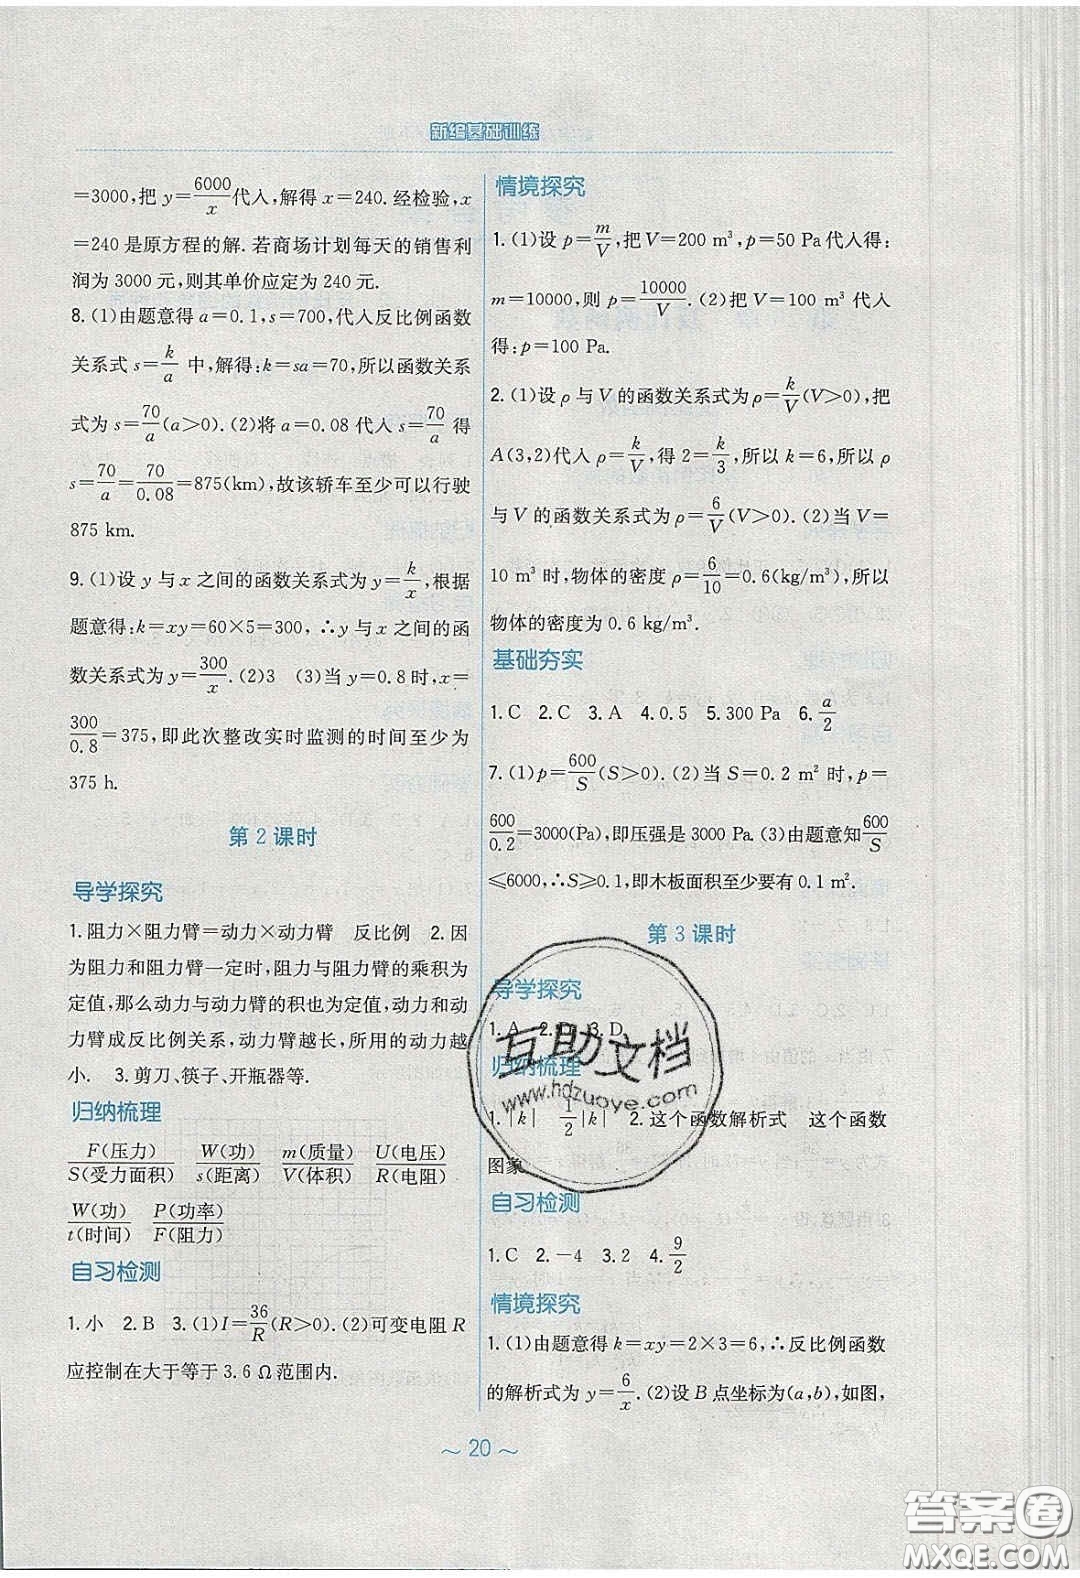 新编基础训练
=3000,把 y=6000/x代入,解得 x=240. 经检验,x
=240 是原方程的解. 若商场计划每天的销售利
润为 3000 元,则其单价应定为 240 元.
8. (1)由题意得 a=0.1,s=700,代入反比例函数
关系式 s=k/a 中,解得:k=sa=70,所以函数关系
式为 s=70/a(a>0). (2)将 a=0.08 代入 s=70/a 得
s=70/a=70/0.08=875(km),故该轿车至少可以行驶
875 km.
9. (1)设 y 与 x 之间的函数关系式为 y=k/x,根据
题意得:k=xy=60×5=300, ∴y 与 x 之间的函
数关系式为 y=300/x. (2)3 (3)当 y=0.8 时,x=
300/0.8=375,即此次整改实时监测的时间至少为
375 h.
第 2 课时
导学探究
1. 阻力×阻力臂=动力×动力臂 反比例 2. 因
为阻力和阻力臂一定时,阻力与阻力臂的乘积为
定值,那么动力与动力臂的积也为定值,动力和动
力臂成反比例关系,动力臂越长,所用的动力越
小. 3. 剪刀、筷子、开瓶器等.
归纳梳理
F(压力)/S(受力面积) W(功)/s(距离) m(质量)/V(体积) U(电压)/R(电阻)
W(功)/t(时间) P(功率)/F(阻力)
自习检测
1. 小 2. B 3. (1)I=36/R(R>0). (2)可变电阻 R
应控制在大于等于 3.6 Ω 范围内.
情境探究
1. (1)设 p=m/V,把 V=200 m³,p=50 Pa 代入得:
m=10000,则 p=10000/V. (2)把 V=100 m³ 代入
得:p=100 Pa.
2. (1)设 ρ 与 V 的函数关系式为 ρ=k/V(V>0),把
A(3,2)代入 ρ=k/V,得 2=k/3,所以 k=6,所以 ρ
与 V 的函数关系式为 ρ=6/V(V>0). (2)当 V=
10 m³ 时,物体的密度 ρ=6/10=0.6(kg/m³),所以
物体的密度为 0.6 kg/m³.
基础夯实
1. C 2. C 3. A 4. 0.5 5. 300 Pa 6. a/2
7. (1)p=600/S(S>0). (2)当 S=0.2 m² 时,p=
600/0.2=3000(Pa),即压强是 3000 Pa. (3)由题意知600/S
≤6000,∴S≥0.1,即木板面积至少要有 0.1 m².
第 3 课时
导学探究
1. A 2. D 3. D
归纳梳理
1. |k| 1/2|k| 2. 这个函数解析式 这个函数
图象
自习检测
1. C 2. -4 3. 2 4. 9/2
情境探究
1. (1)由题意得 k=xy=2×3=6,∴反比例函数
的解析式为 y=6/x. (2)设 B 点坐标为(a,b),如图,
～ 20 ～
互助文档
www.hdzuoye.com
答案圈
MXQE.COM